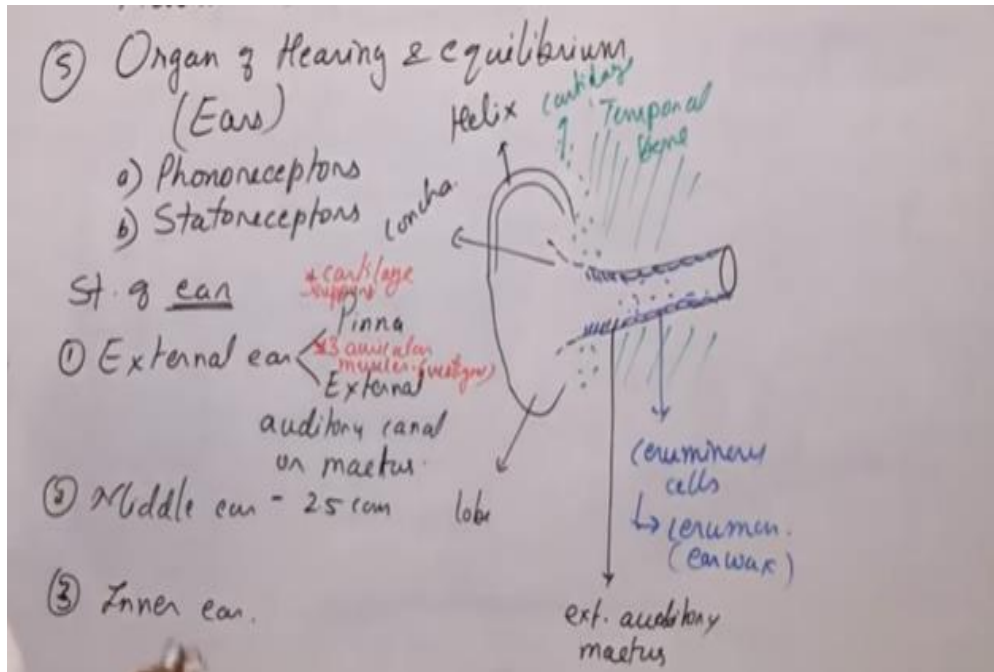 ⑤ Organ of Hearing & equilibrium
(Ears)
a) Phonoreceptors
b) Statoreceptors
St. of ear
* cartilage
support
Pinna
① External ear
*3 auricular
muscles (vestigeal)
External
auditory canal
or maetus.
② Middle ear -
③ Inner ear.
Helix
cartilage
Temporal
Bone
Concha
lobe
Ceruminous
cells
↳ cerumen.
(ear wax)
ext. auditory
maetus